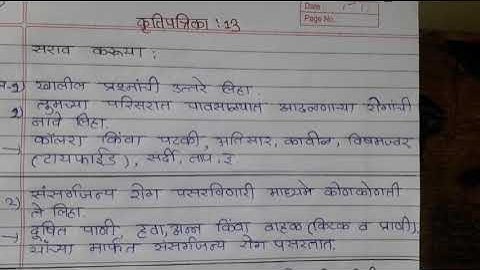 Date
Page No.
कृतिपत्रिका : 13
सराव करूया :
प्र-१) खालील प्रश्नांची उत्तरे लिहा.
१) तुमच्या परिसरात पावसाळ्यात आढळणाऱ्या रोगांची
नावे लिहा.
→ कॉलरा किंवा पटकी, अतिसार, कावीळ, विषमज्वर
(टायफाईड), सर्दी, ताप, इ
२) संसर्गजन्य रोग पसरविणारी माध्यमे कोणकोणती
ते लिहा.
→ दूषित पाणी, हवा, अन्न किंवा वाहक (किटक व प्राणी)
यांच्या मार्फत संसर्गजन्य रोग पसरतात.